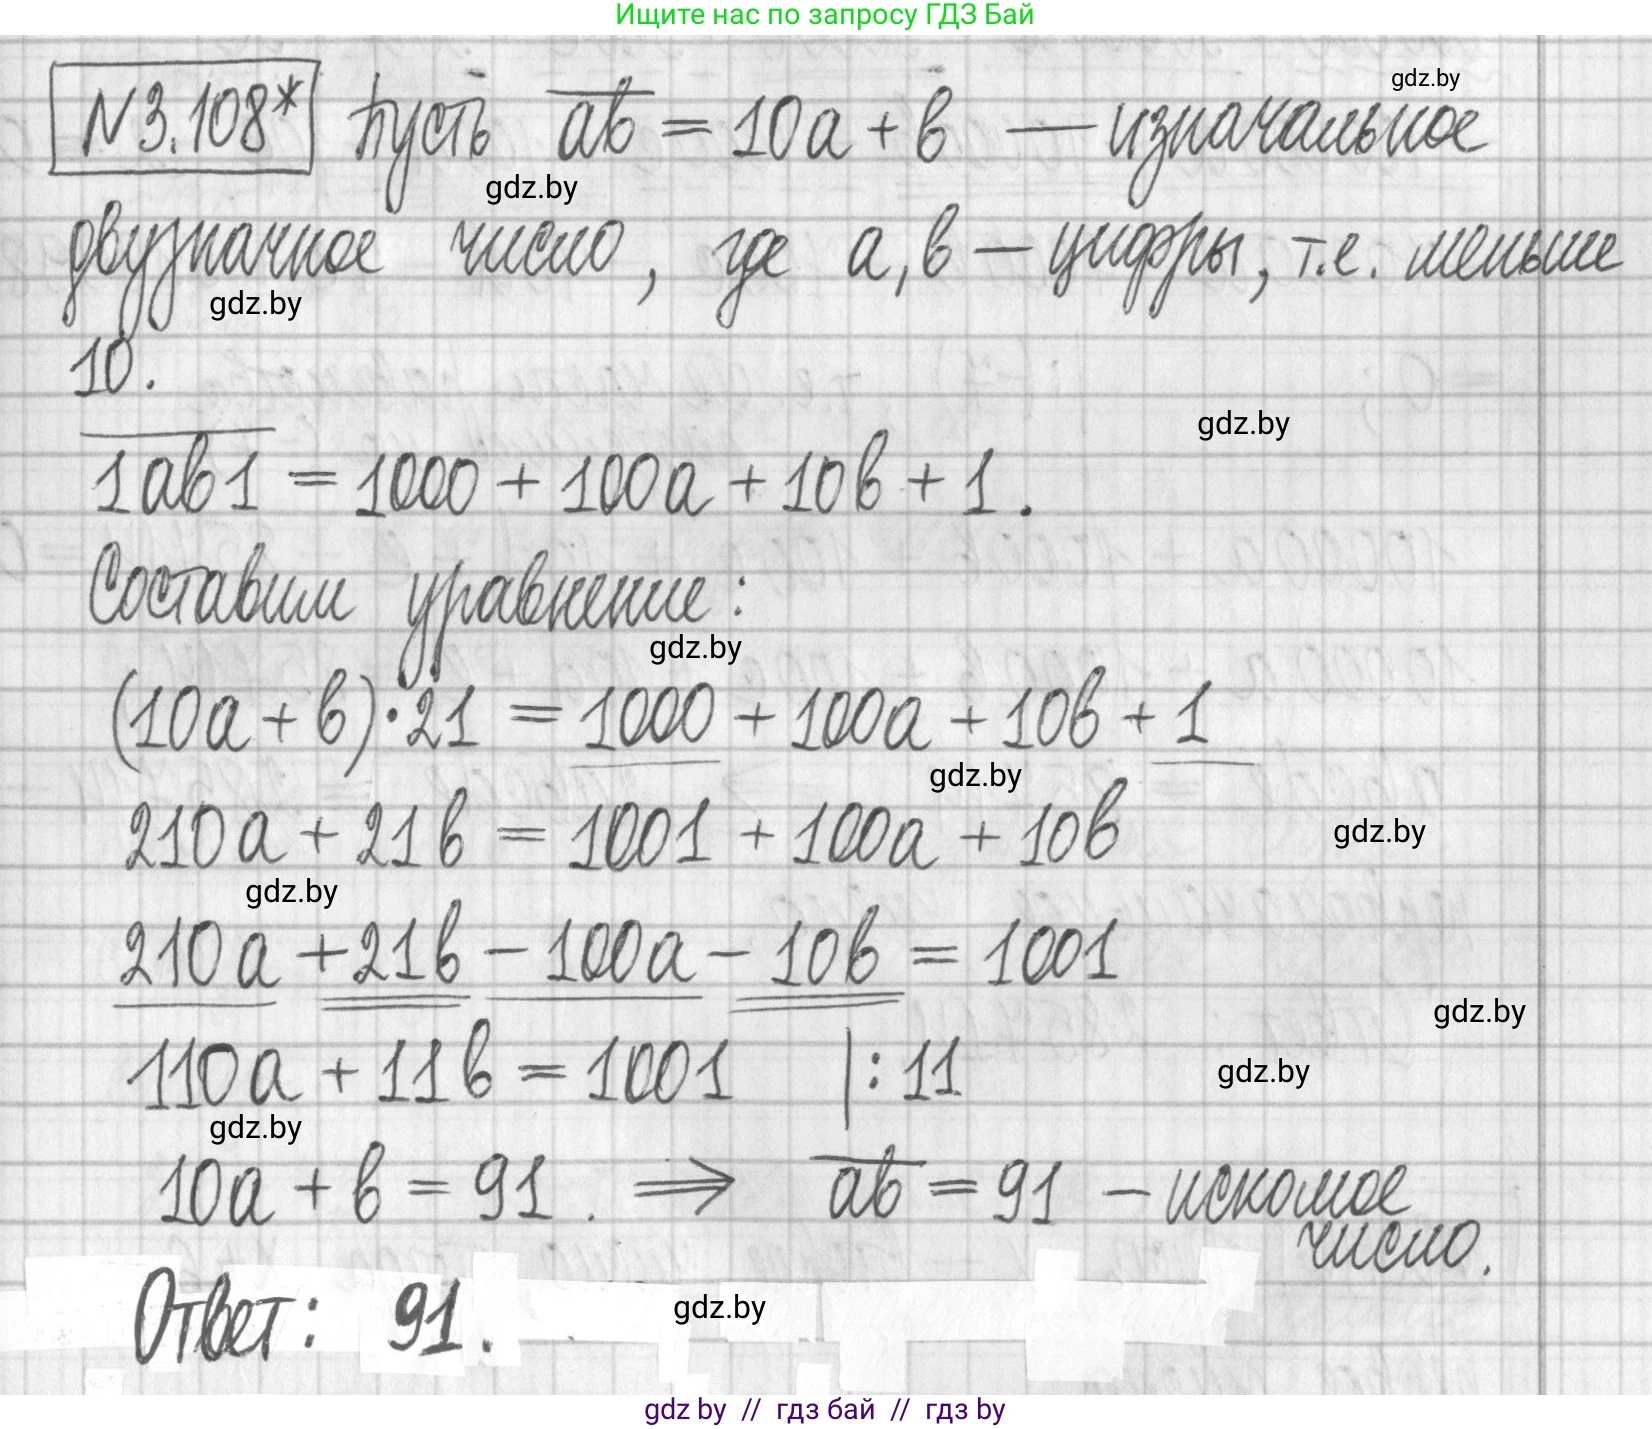 Ищите нас по запросу ГДЗ Бай
gdz.by
N3.108* Пусть ab = 10a + b — изначальное
gdz.by
двузначное число, где a, b — цифры, т.е. меньше
gdz.by
10.
gdz.by
1ab1 = 1000 + 100a + 10b + 1.
Составим уравнение:
gdz.by
(10a + b)·21 = 1000 + 100a + 10b + 1
gdz.by
210a + 21b = 1001 + 100a + 10b
gdz.by
gdz.by
210a + 21b - 100a - 10b = 1001
gdz.by
110a + 11b = 1001 | : 11
gdz.by
gdz.by
10a + b = 91. ⇒ ab = 91 - искомое
число.
Ответ: 91.
gdz.by
gdz by // гдз бай // гдз by